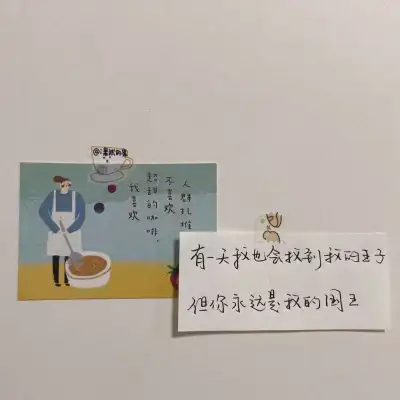 人群扎堆
不喜欢
的咖啡，
我喜欢
有一天我也会找到我的王子
但你永远是我的国王